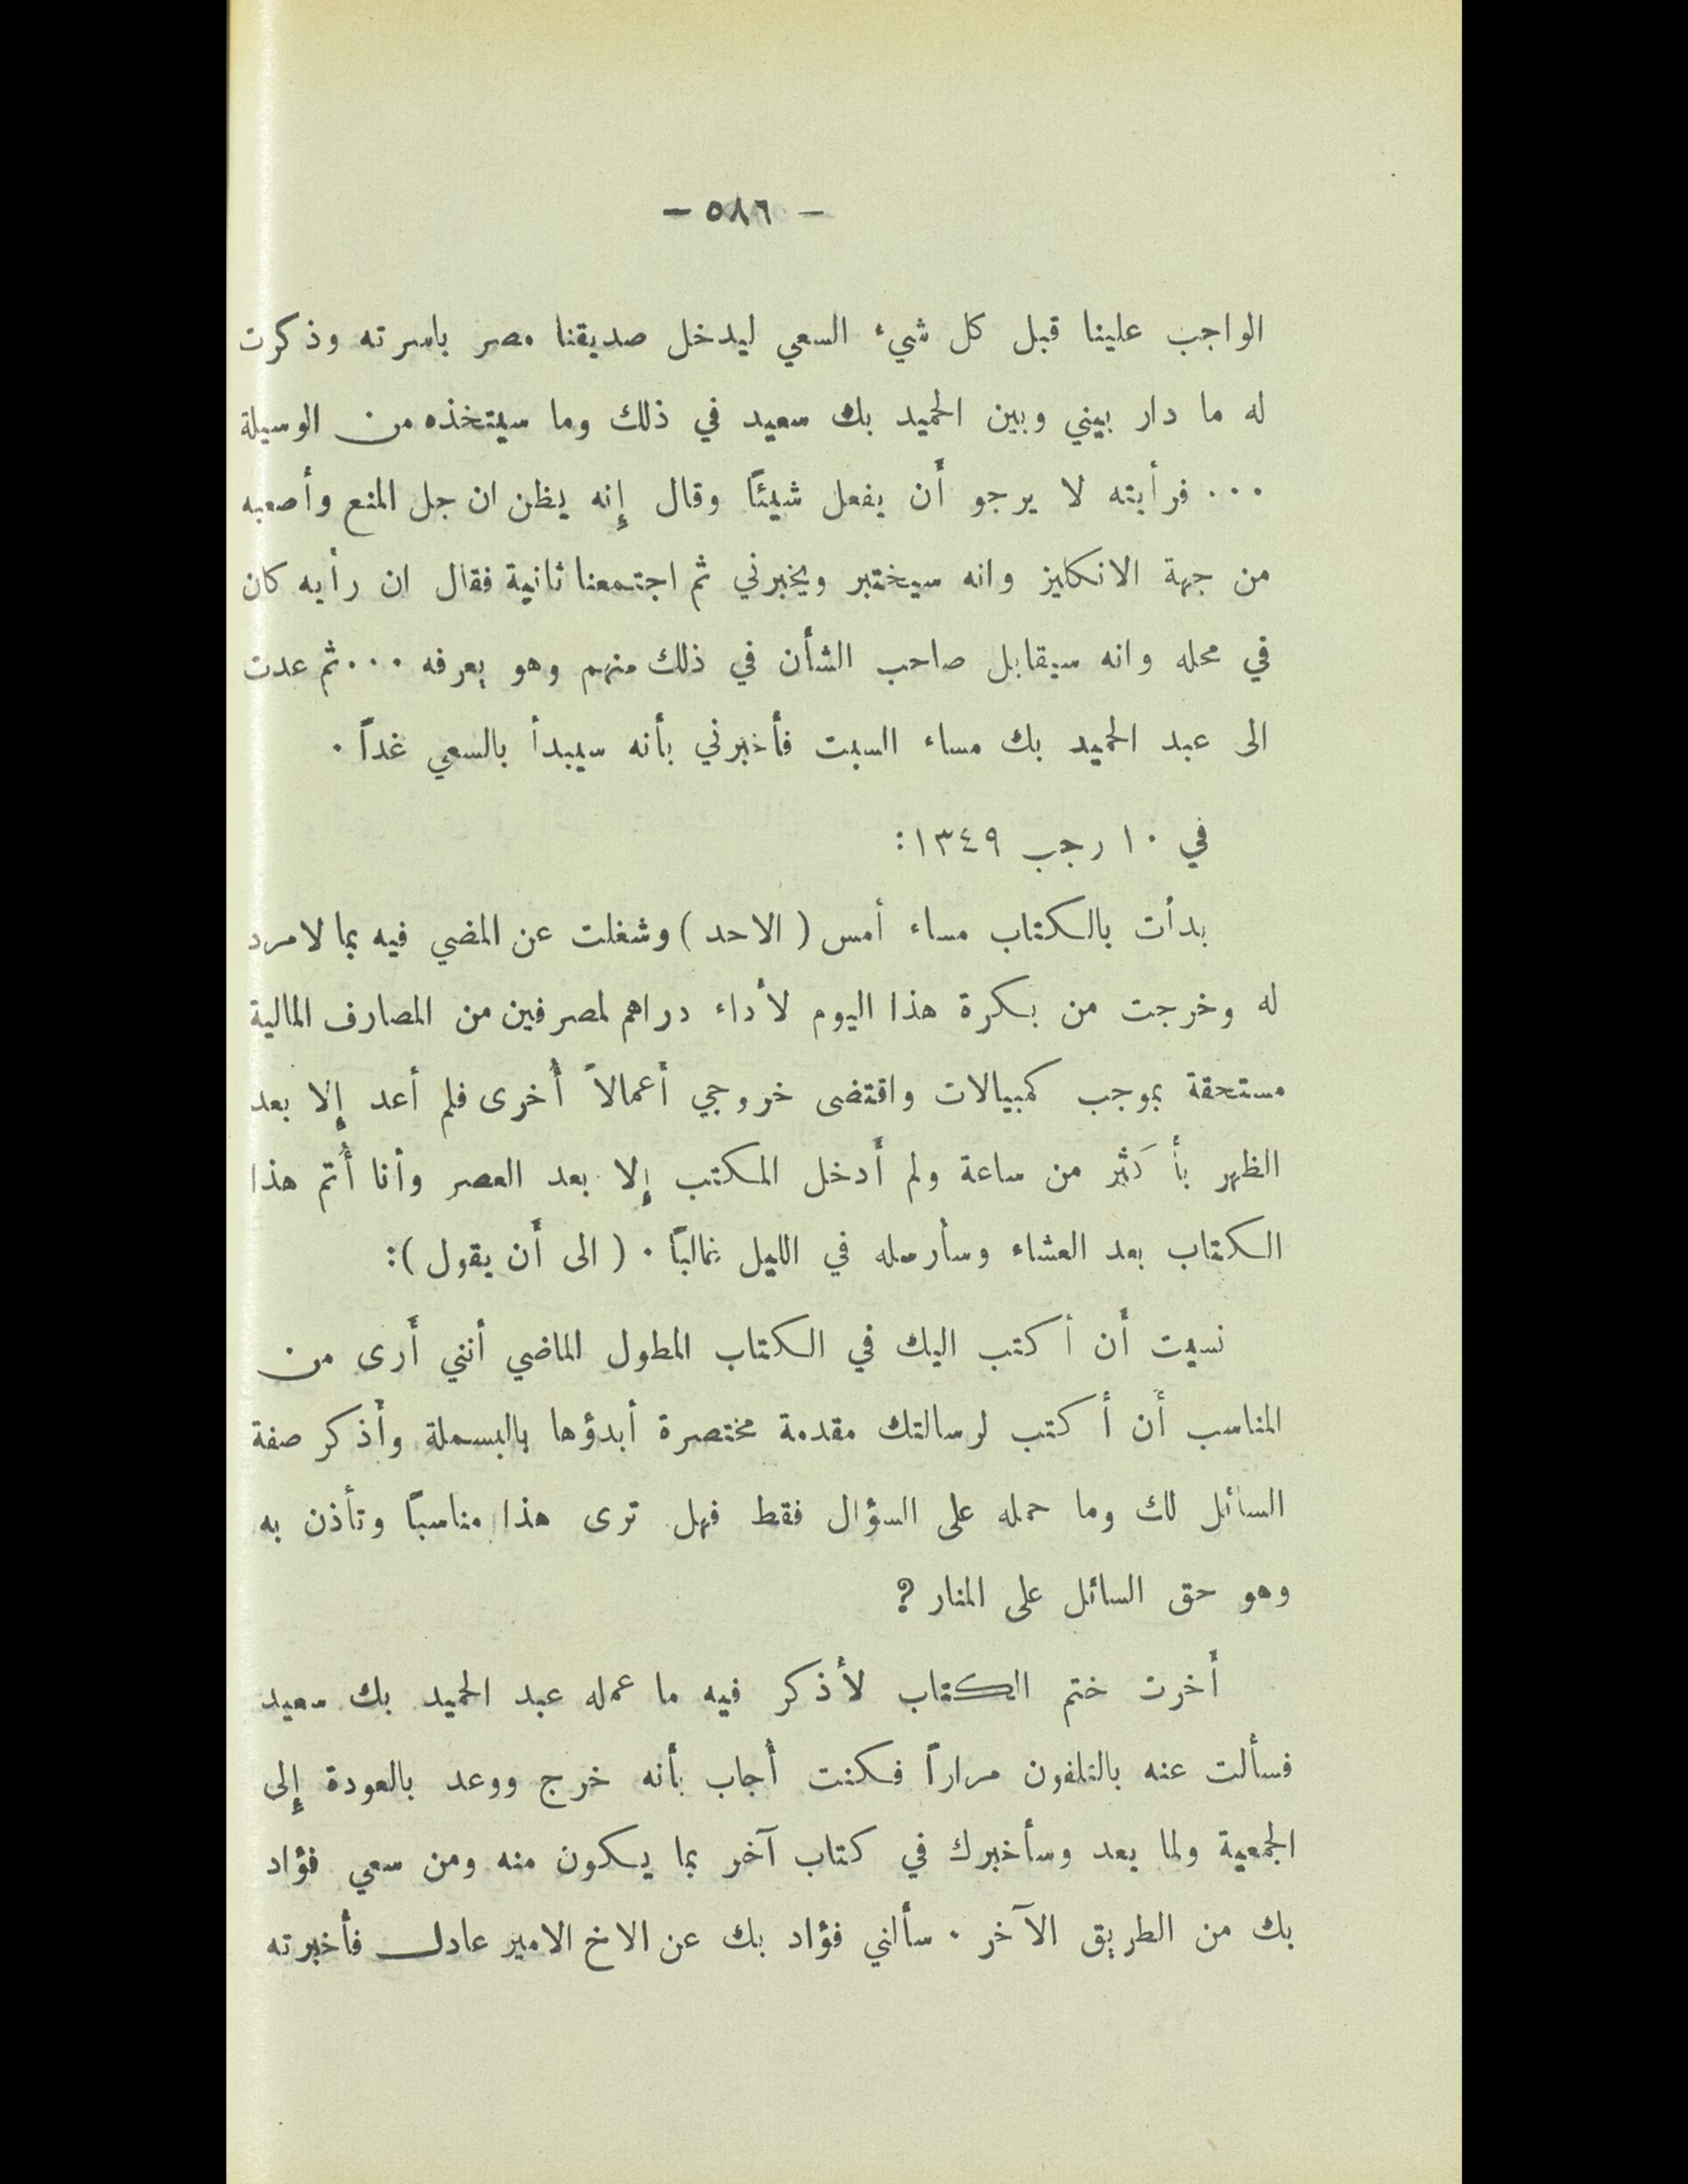 — ٥٨٦ —
الواجب علينا قبل كل شيء السعي ليدخل صديقنا مصر باسرته وذكرت
له ما دار بيني وبين الحميد بك سعيد في ذلك وما سيتخذه من الوسيلة
... فرأيته لا يرجو أَن يفعل شيئًا وقال إِنه يظن ان جل المنع وأصعبه
من جهة الانكليز وانه سيختبر ويخبرني ثم اجتمعنا ثانية فقال ان رأيه كان
في محله وانه سيقابل صاحب الشأن في ذلك منهم وهو يعرفه ... ثم عدت
الى عبد الحميد بك مساء السبت فأخبرني بأنه سيبدأ بالسعي غداً .
في ١٠ رجب ١٣٤٩:
بدأت بالكتاب مساء أمس ( الاحد ) وشغلت عن المضي فيه بما لا مرد
له وخرجت من بكرة هذا اليوم لأداء دراهم لمصرفين من المصارف المالية
مستحقة بموجب كمبيالات واقتضى خروجي أَعمالاً أُخرى فلم أعد إِلا بعد
الظهر بأكثر من ساعة ولم أَدخل المكتب إِلا بعد العصر وأنا أُتم هذا
الكتاب بعد العشاء وسأرسله في الليل غالبًا . ( الى أَن يقول ):
نسيت أَن أكتب اليك في الكتاب المطول الماضي أنني أَرى من
المناسب أَن أكتب لرسالتك مقدمة مختصرة أبدؤها بالبسملة وأَذكر صفة
السائل لك وما حمله على السؤال فقط فهل ترى هذا مناسبًا وتأذن به
وهو حق السائل على المنار ؟
أَخرت ختم الكتاب لأذكر فيه ما عمله عبد الحميد بك سعيد
فسألت عنه بالتلفون مراراً فكنت أُجاب بأنه خرج ووعد بالعودة إِلى
الجمعية ولما يعد وسأخبرك في كتاب آخر بما يكون منه ومن سعي فؤاد
بك من الطريق الآخر . سألني فؤاد بك عن الاخ الامير عادل فأخبرته